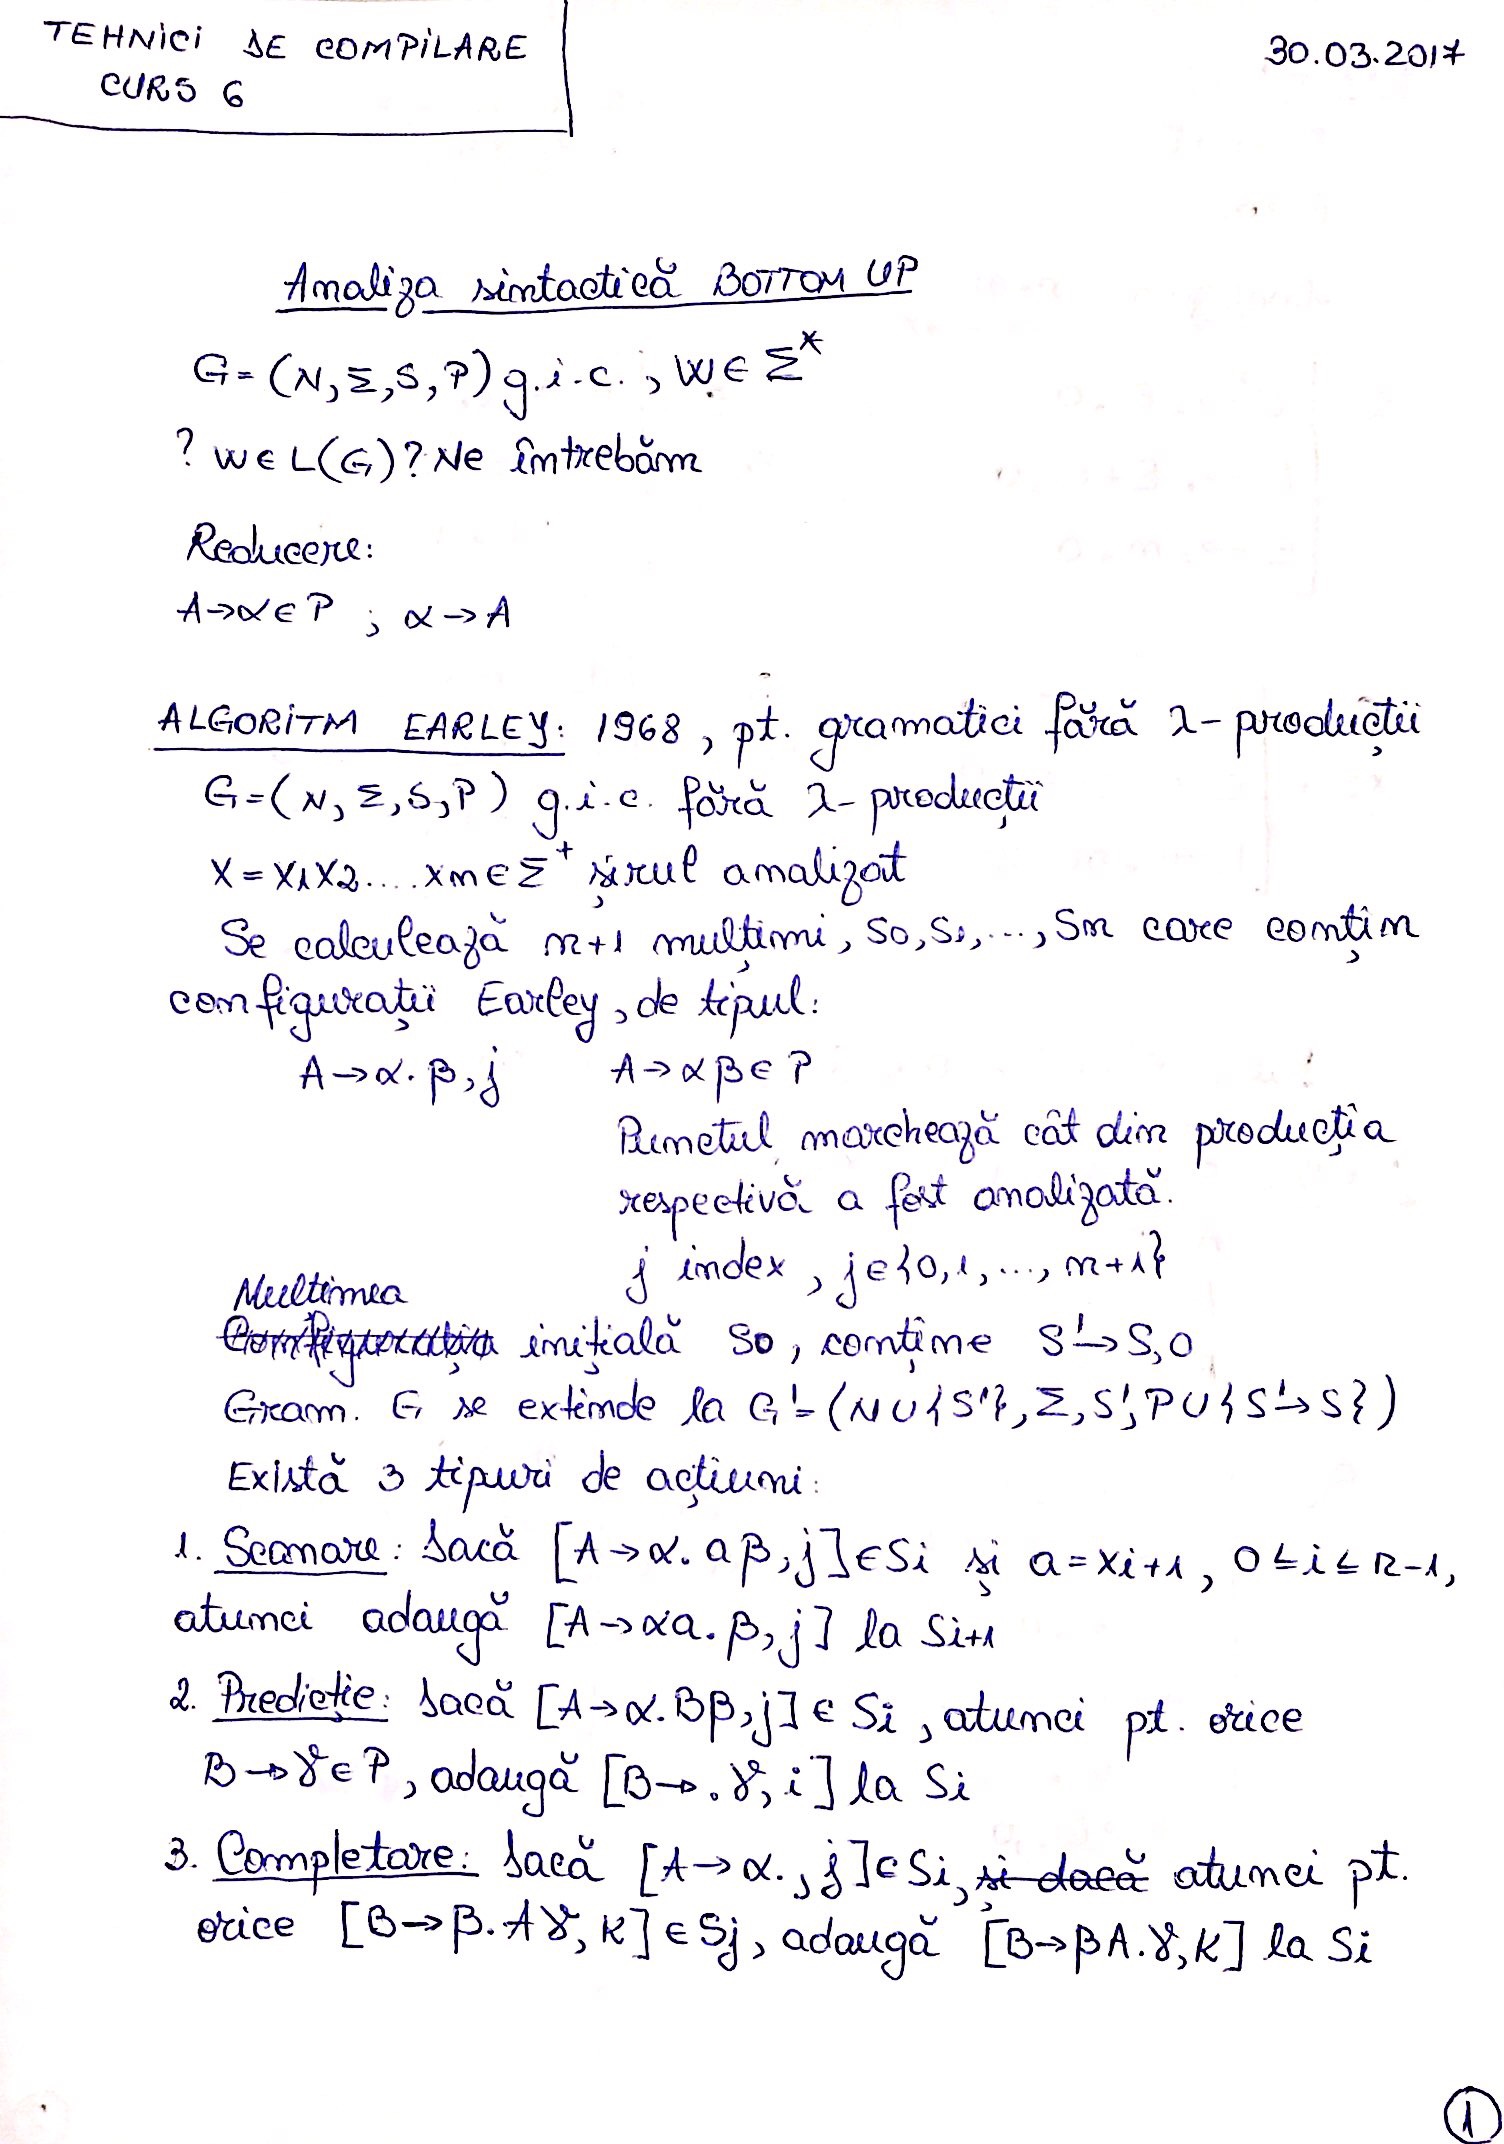 TEHNICI DE COMPILARE
CURS 6
30.03.2017
Analiza sintactică BOTTOM UP
G=(N,Σ,S,P) g.i.c., w∈Σ*
? w∈L(G)? Ne întrebăm
Reducere:
A→α∈P ; α→A
ALGORITM EARLEY: 1968, pt. gramatici fără λ-producții
G=(N,Σ,S,P) g.i.c. fără λ-producții
X=X1X2....xn∈Σ+ șirul analizat
Se calculează n+1 mulțimi, S0,S1,...,Sn care conțin
configurații Earley, de tipul:
A→α.β,j A→αβ∈P
Punctul marchează cât din producția
respectivă a fost analizată.
j index, j∈{0,1,...,n+1}
Multimea
Configurația inițială S0, conține S'→S,0
Gram. G se extinde la G'=(N∪{S'},Σ,S',P∪{S'→S})
Există 3 tipuri de acțiuni:
1. Scanare: Dacă [A→α.aβ,j]∈Si și a=xi+1, 0≤i≤n-1,
atunci adaugă [A→αa.β,j] la Si+1
2. Predicție: Dacă [A→α.Bβ,j]∈Si, atunci pt. orice
B→γ∈P, adaugă [B→.γ,i] la Si
3. Completare: Dacă [A→α.,j]∈Si, și dacă atunci pt.
orice [B→β.Aγ,K]∈Sj, adaugă [B→βA.γ,K] la Si
1